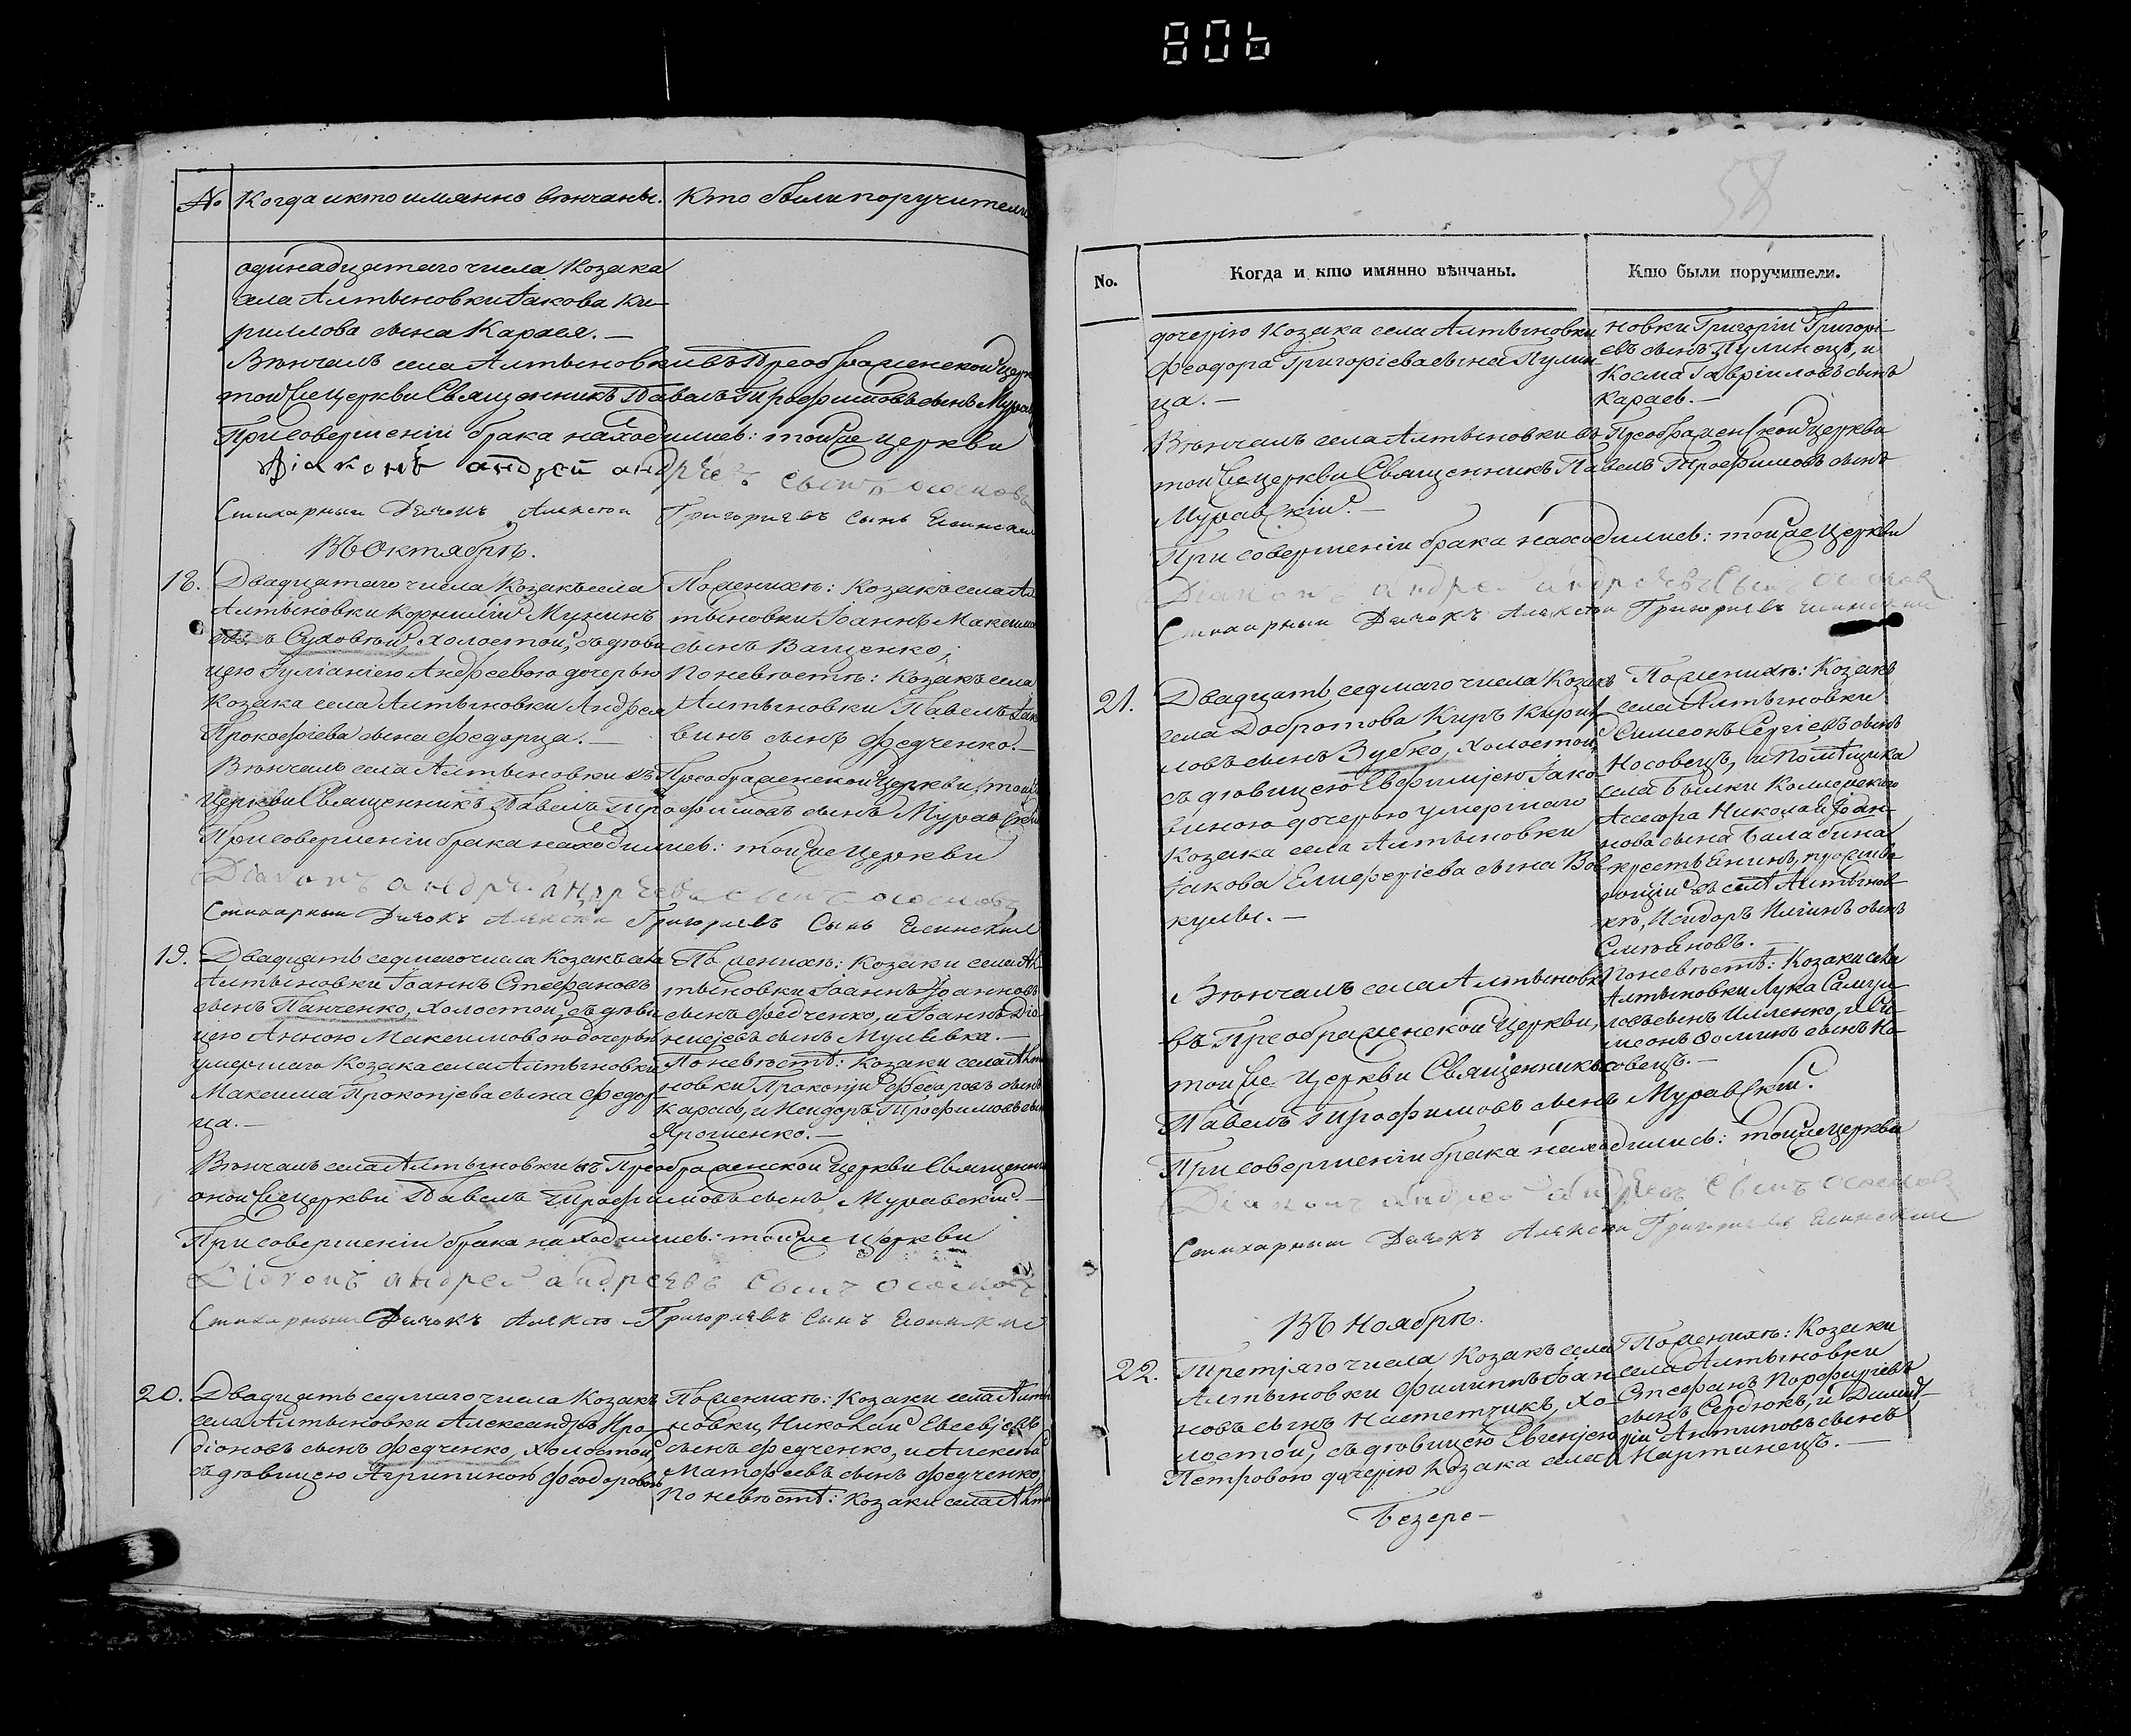 806
№
Когда и кто имянно вѣнчаны.
Кто были поручители
одинадцатаго числа Козака
села Алтыновки Іакова Ки-
риллова сына Карася.—
Вѣнчалъ села Алтыновки въ Преображенской церк
тойже церкви Священникъ Павелъ Трофимовъ сынъ Мурав
При совершеніи брака находились: тойже церкви
Діяконъ андрей андрѣевъ сынъ
Стихарный Дячокъ Алексѣй Григориевъ сынъ
Въ Октябрѣ.
18.
Двадцатаго числа Козакъ села
Алтыновки Корнилій Мининъ
сынъ Суховѣй, холостой, съ дѣви
цею Іуліаніею Андреевою дочерью
Козака села Алтыновки Андрея
Прокофіева сына Федорца.—
По женихѣ: Козакъ села Ал
тыновки Іоаннъ Максимо
сынъ Ващенко;
По невѣстѣ: Козакъ села
Алтыновки Павелъ Іак
винъ сынъ Федченко.—
Вѣнчалъ села Алтыновки въ Преображенской Церкви, тойже
Церкви Священникъ Павелъ Трофимовъ сынъ Муравскій
При совершеніи брака находились: тойже Церкви
Діяконъ андрей андрѣевъ сынъ
Стихарный Дячокъ Алексѣй Григориевъ Сынъ
19.
Двадцять седмаго числа Козакъ села
Алтыновки Іоаннъ Стефановъ
сынъ Панченко, холостой, съ дѣви
цею Анною Максимовою дочерью
умершаго Козака села Алтыновки
Максима Прокопіева сына Федор-
ца.—
По женихѣ: Козаки села Ал
тыновки Іоаннъ Іоанновъ
сынъ Федченко, и Іоаннъ Діо-
нисіевъ сынъ Мулевка.—
По невѣстѣ: Козаки села Алты
новки Прокопій Федоровъ сынъ
Карась, и Исидоръ Трофимовъ сын
Ярошенко.—
Вѣнчалъ села Алтыновки въ Преображенской Церкви Священник
оной же церкви Павелъ Трофимовъ сынъ Муравскій.—
При совершеніи брака находились: тойже Церкви
Діяконъ андрей андреевъ сынъ
Стихарный Дячокъ Алексѣй Григориевъ Сынъ
20.
Двадцать седмаго числа Козакъ
села Алтыновки Александръ Иро-
діоновъ сынъ Федченко, холостой,
съ дѣвицею Агрипиною Феодоровою
По женихѣ: Козаки села Алты
новки, Николай Евсевіевъ
сынъ Федченко, и Алексѣй
Матфеевъ сынъ Федченко,
По невѣстѣ: Козаки села Алты
58
No.
Когда и кто имянно вѣнчаны.
Кто были поручители.
дочерію Козака села Алтыновки
Феодора Григоріева сына Пулин
ца.—
новки Григорій Григорі-
евъ сынъ Пулинецъ, и
Косма Гавріиловъ сынъ
Карась.—
Вѣнчалъ села Алтыновки въ Преображенской церкви
тойже церкви Священникъ Павелъ Трофимовъ сынъ
Муравскій.—
При совершеніи брака находились: тойже Церкви
Діяконъ андрей андреевъ сынъ
Стихарный Дячокъ Алексѣй Григориевъ
21.
Двадцать седмаго числа Козакъ
села Добротова Киръ Кирил
ловъ сынъ Зубко, холостой,
съ дѣвицею Евфиміею Іако-
виною дочерью умершаго
Козака села Алтыновки
Іакова Елиферіева сына Вов
кулы.—
По женихѣ: Козакъ
села Алтыновки
Симеонъ Сергіевъ сынъ
Носовецъ, и Помѣщика
села Коллежскаго
Ассесора Николая Іоан-
нова сына Балабина
крестьянинъ, прожива
ющій въ селѣ Алтынов-
кѣ, Исидоръ Иліинъ сынъ
Симѣановъ.
По невѣстѣ: Козаки села
Алтыновки Лука Самуи-
ловъ сынъ Иленко, и Си-
меонъ Фоминъ сынъ Но-
совецъ.—
Вѣнчалъ села Алтыновки
въ Преображенской Церкви,
тойже Церкви Священникъ
Павелъ Трофимовъ сынъ Муравскій.
При совершеніи брака находились: тойже церкви
Діяконъ андрей андреевъ сынъ
Стихарный Дячокъ Алексѣй Григориевъ
Въ Ноябрѣ.
22.
Третіяго числа Козакъ села
Алтыновки Филиппъ Іоан
новъ сынъ Настетчикъ, хо-
лостой, съ дѣвицею Евгеніею
Петровою дочерію Козака села
По женихѣ: Козаки
села Алтыновки
Стефанъ Порфиріевъ
сынъ Сердюкъ, и Димит-
рій Антиповъ сынъ
Мартинецъ.—
Безере-